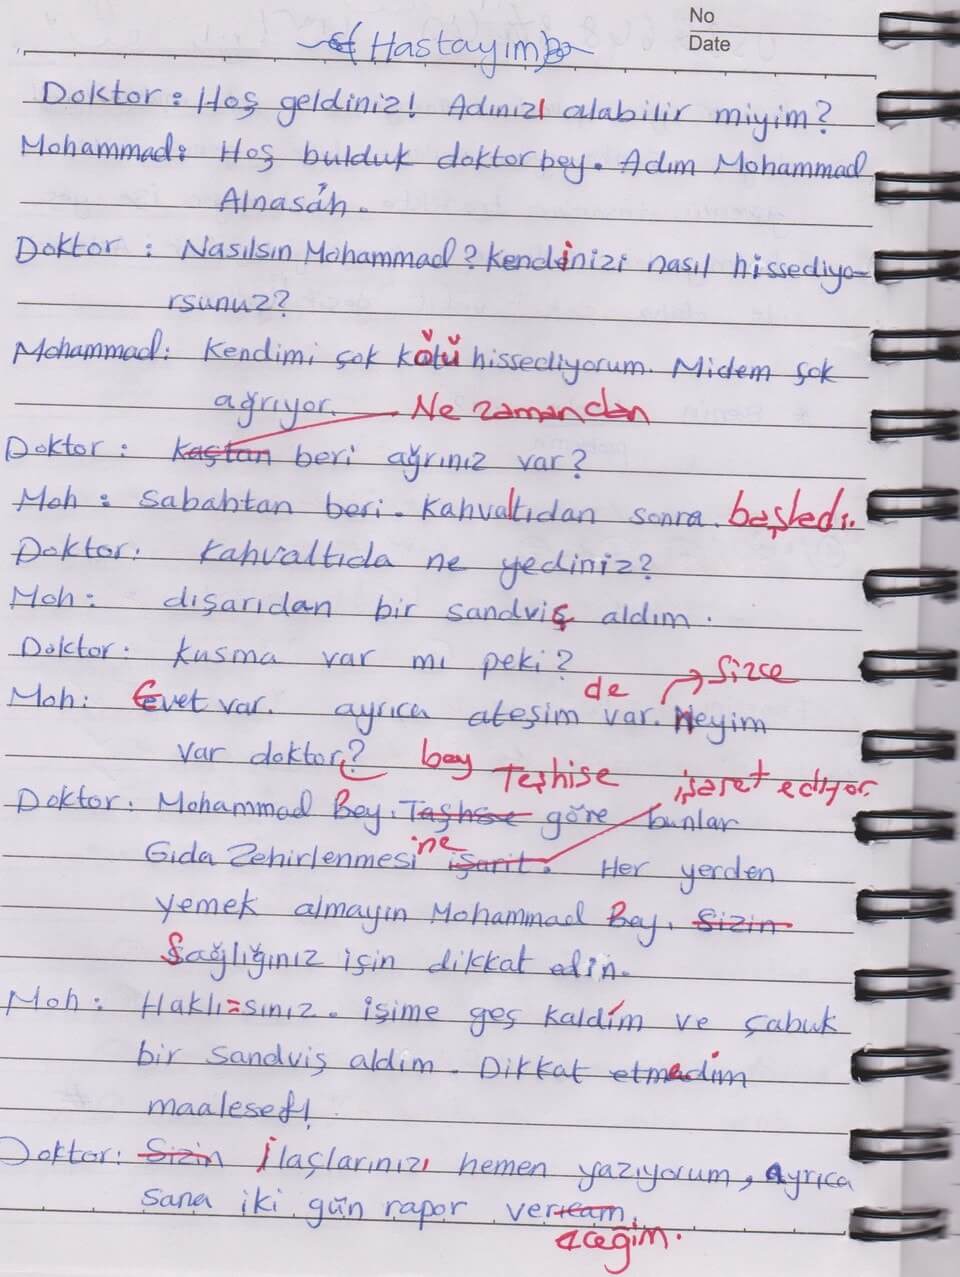 No
Date
Hastayım
Doktor : Hoş geldiniz! Adınızı alabilir miyim?
Mohammad: Hoş bulduk doktor bey. Adım Mohammad
Alnasáh.
Doktor : Nasılsın Mohammad? kendinizi nasıl hissediyo-
rsunuz?
Mohammad: Kendimi çok kötü hissediyorum. Midem çok
ağrıyor. Ne zamandan
Doktor : Kaştan beri ağrınız var?
Moh : Sabahtan beri. Kahvaltıdan sonra başladı.
Doktor: Kahvaltıda ne yediniz?
Moh: dışarıdan bir sandviç aldım.
Doktor: Kusma var mı peki?
de Sizce
Moh: Evet var. ayrıca ateşim var. Neyim
var doktor? bey
Teşhise işaret ediyor.
Doktor: Mohammad Bey. Taşhse göre bunlar
Gıda Zehirlenmesi ne işarit. Her yerden
yemek almayın Mohammad Bey. Sizin
Sağlığınız için dikkat edin.
Moh: Haklı=sınız. işime geç kaldım ve çabuk
bir sandviş aldım. Dikkat etmedim
maalesef!
Doktor: Sizin İlaçlarınızı hemen yazıyorum, Ayrıca
sana iki gün rapor vericam.
aceğim.